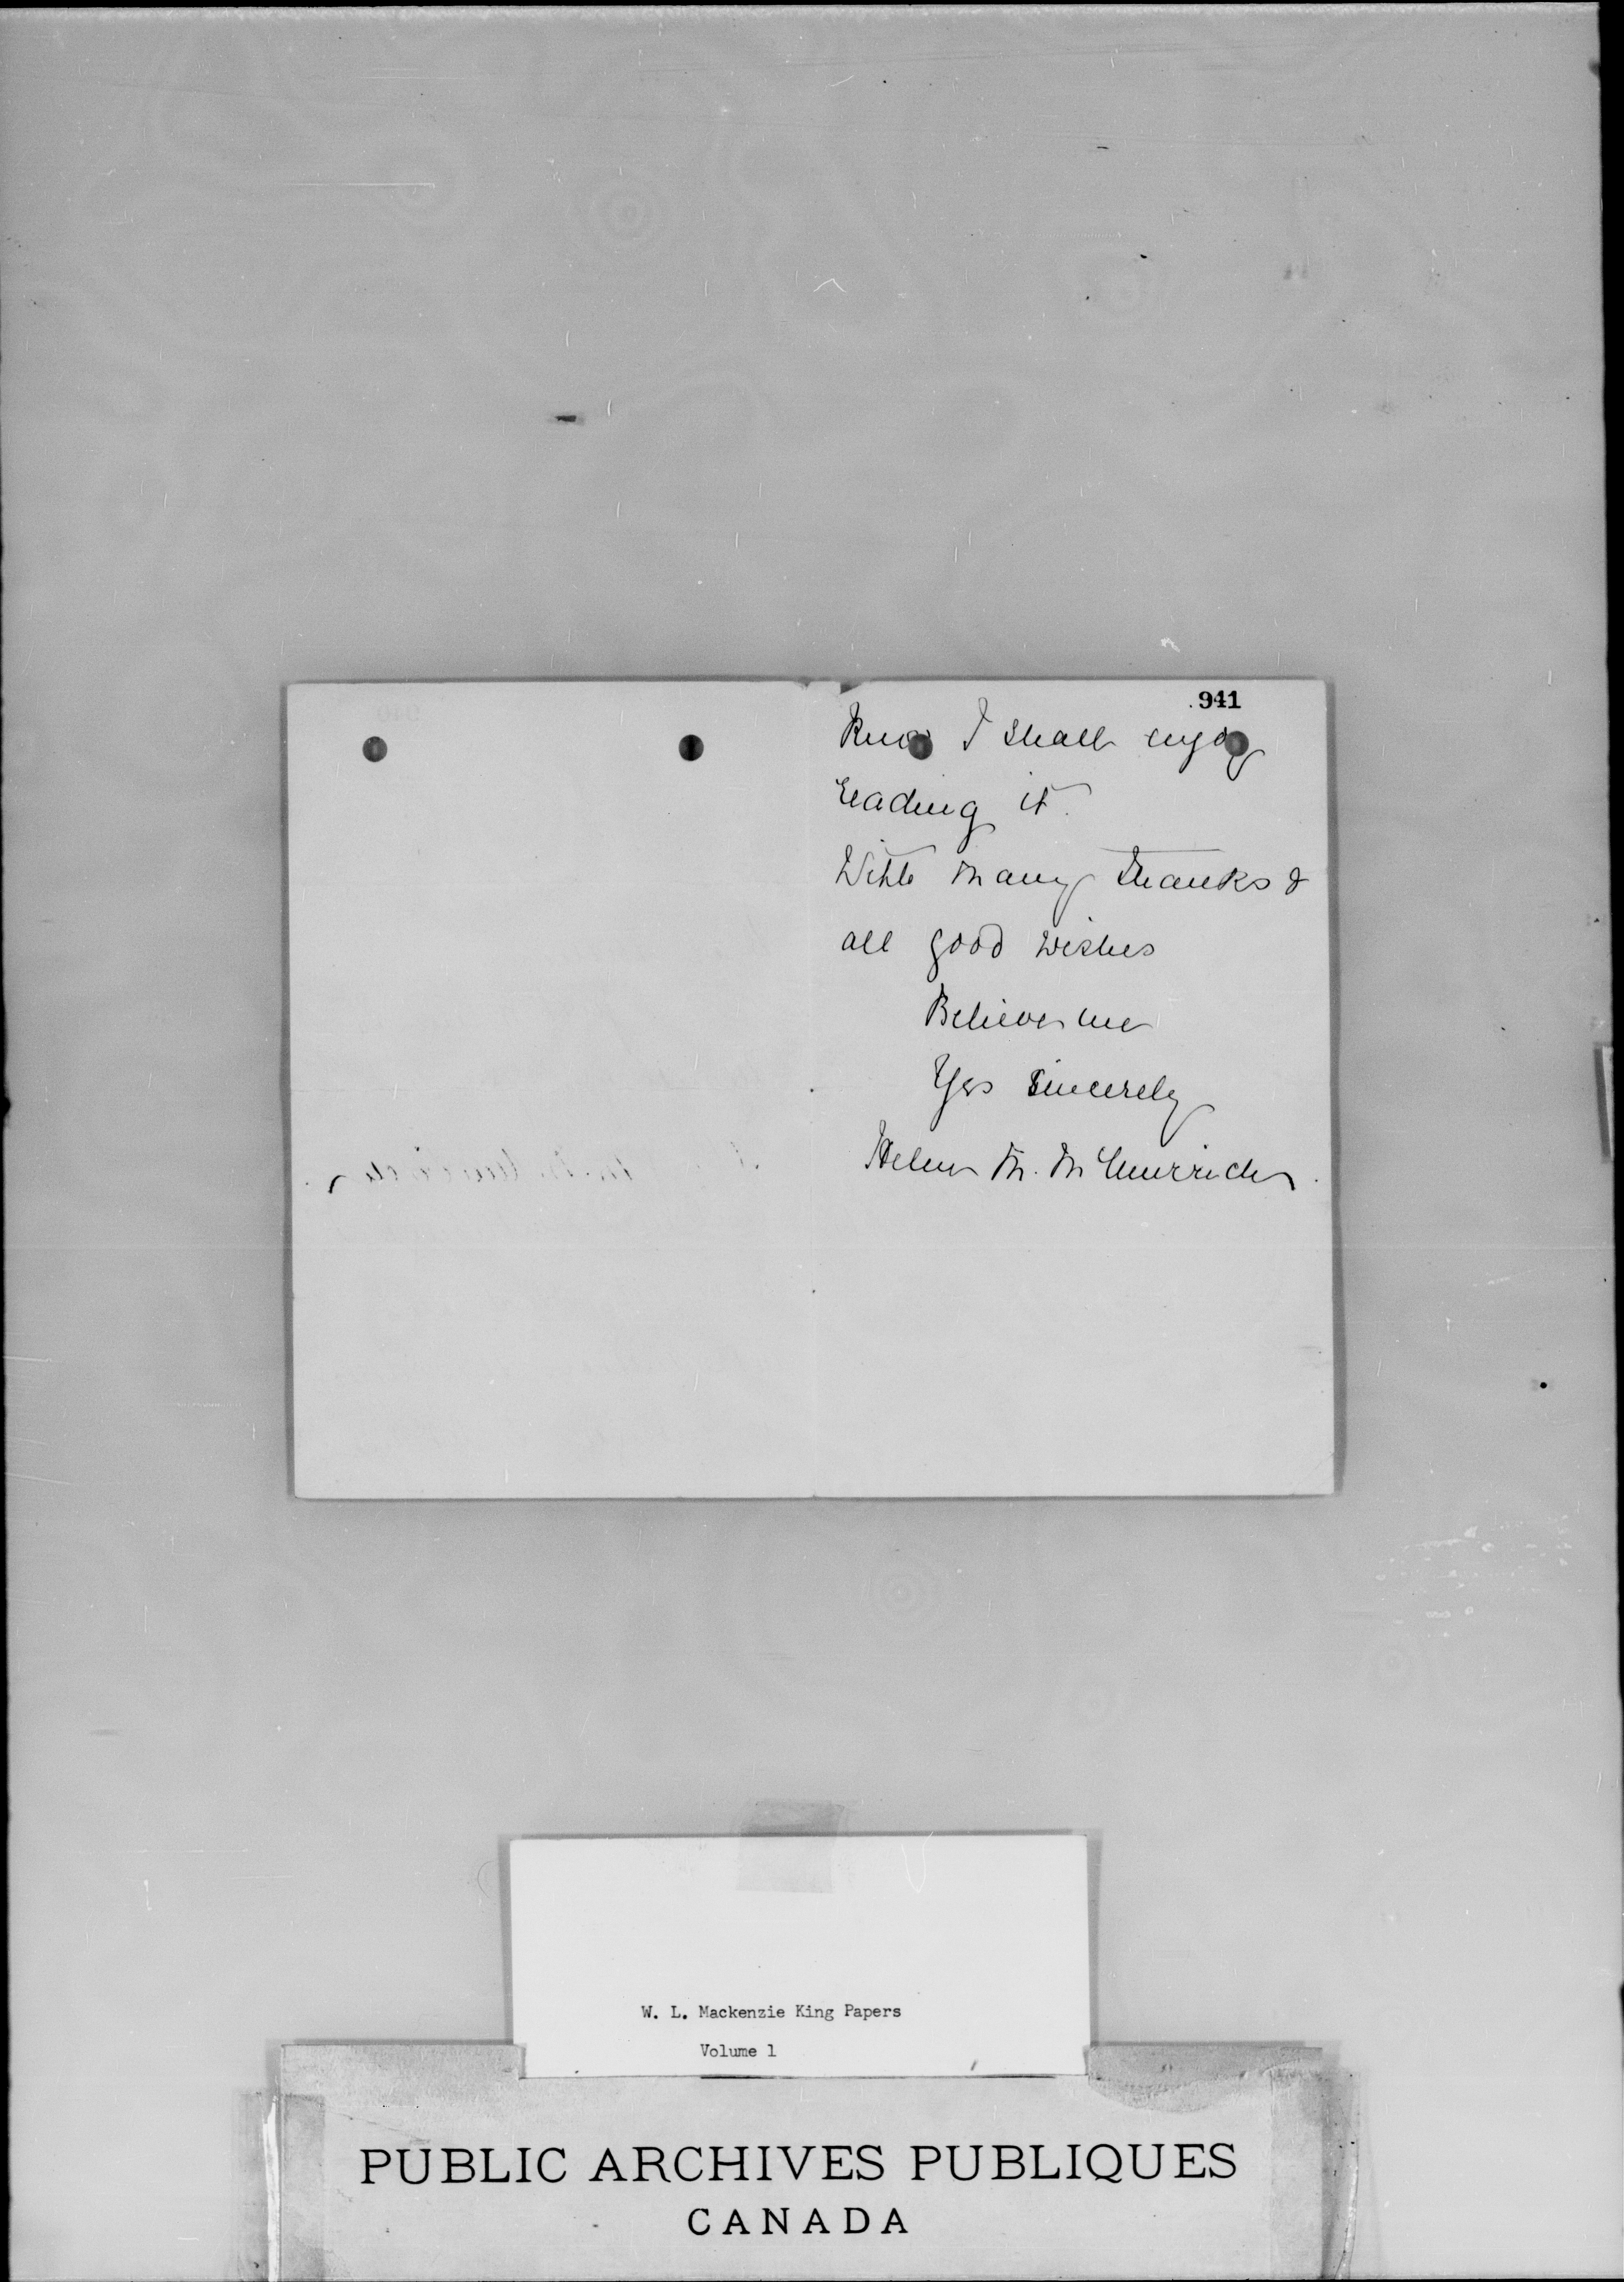 941
Know I shall enjoy
reading it.
With many thanks &
all good wishes
Believe me
Yrs sincerely
Helen M. McMurrich
W. L. Mackenzie King Papers
Volume 1
PUBLIC ARCHIVES PUBLIQUES
CANADA